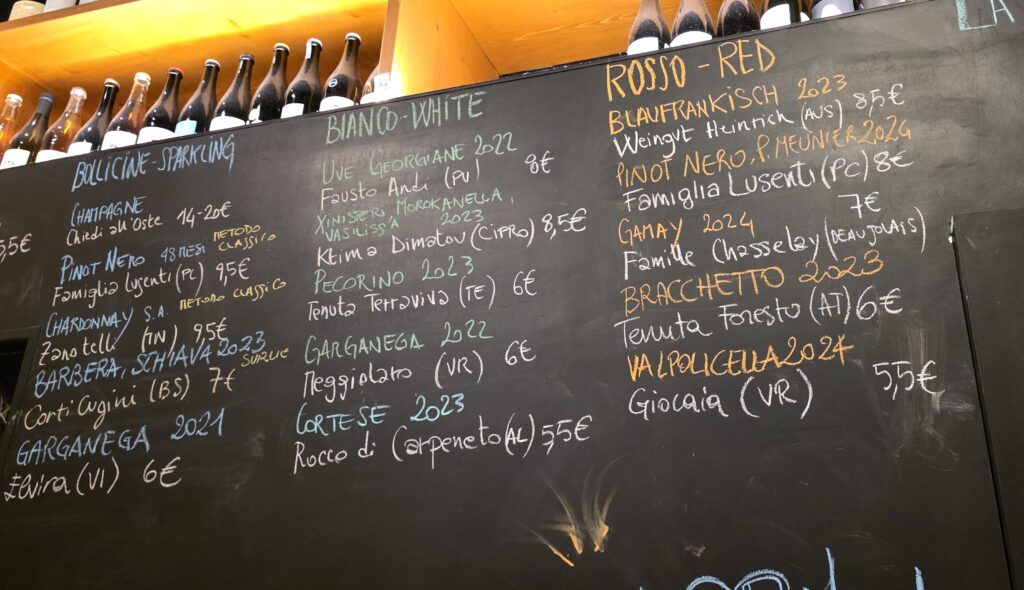 5,5€
BOLLICINE-SPARKLING
CHAMPAGNE
Chiedi all'Oste 14-20€
PINOT NERO 48 MESI METODO CLASSICO
Famiglia Lusenti (PC) 9,5€
CHARDONNAY S.A. METODO CLASSICO
Zanotelli (TN) 9,5€
BARBERA, SCHIAVA 2023 SUR LIE
Corti Cugini (BS) 7€
GARGANEGA 2021
Elvira (VI) 6€
BIANCO-WHITE
UVE GEORGIANE 2022
Fausto Andi (PV) 8€
XINISTERI, MOROKANELLA,
VASILISSA 2023
Ktima Dimatou (CIPRO) 8,5€
PECORINO 2023
Tenuta Terraviva (TE) 6€
GARGANEGA 2022
Meggiolaro (VR) 6€
CORTESE 2023
Rocco di Carpeneto (AL) 5,5€
ROSSO-RED
BLAUFRANKISCH 2023
Weingut Heinrich (AUS) 8,5€
PINOT NERO, P. MEUNIER 2024
Famiglia Lusenti (PC) 8€
GAMAY 2024 7€
Famille Chasselay (BEAUJOLAIS)
BRACCHETTO 2023
Tenuta Foresto (AT) 6€
VALPOLICELLA 2024
Giocaia (VR) 5,5€
LA